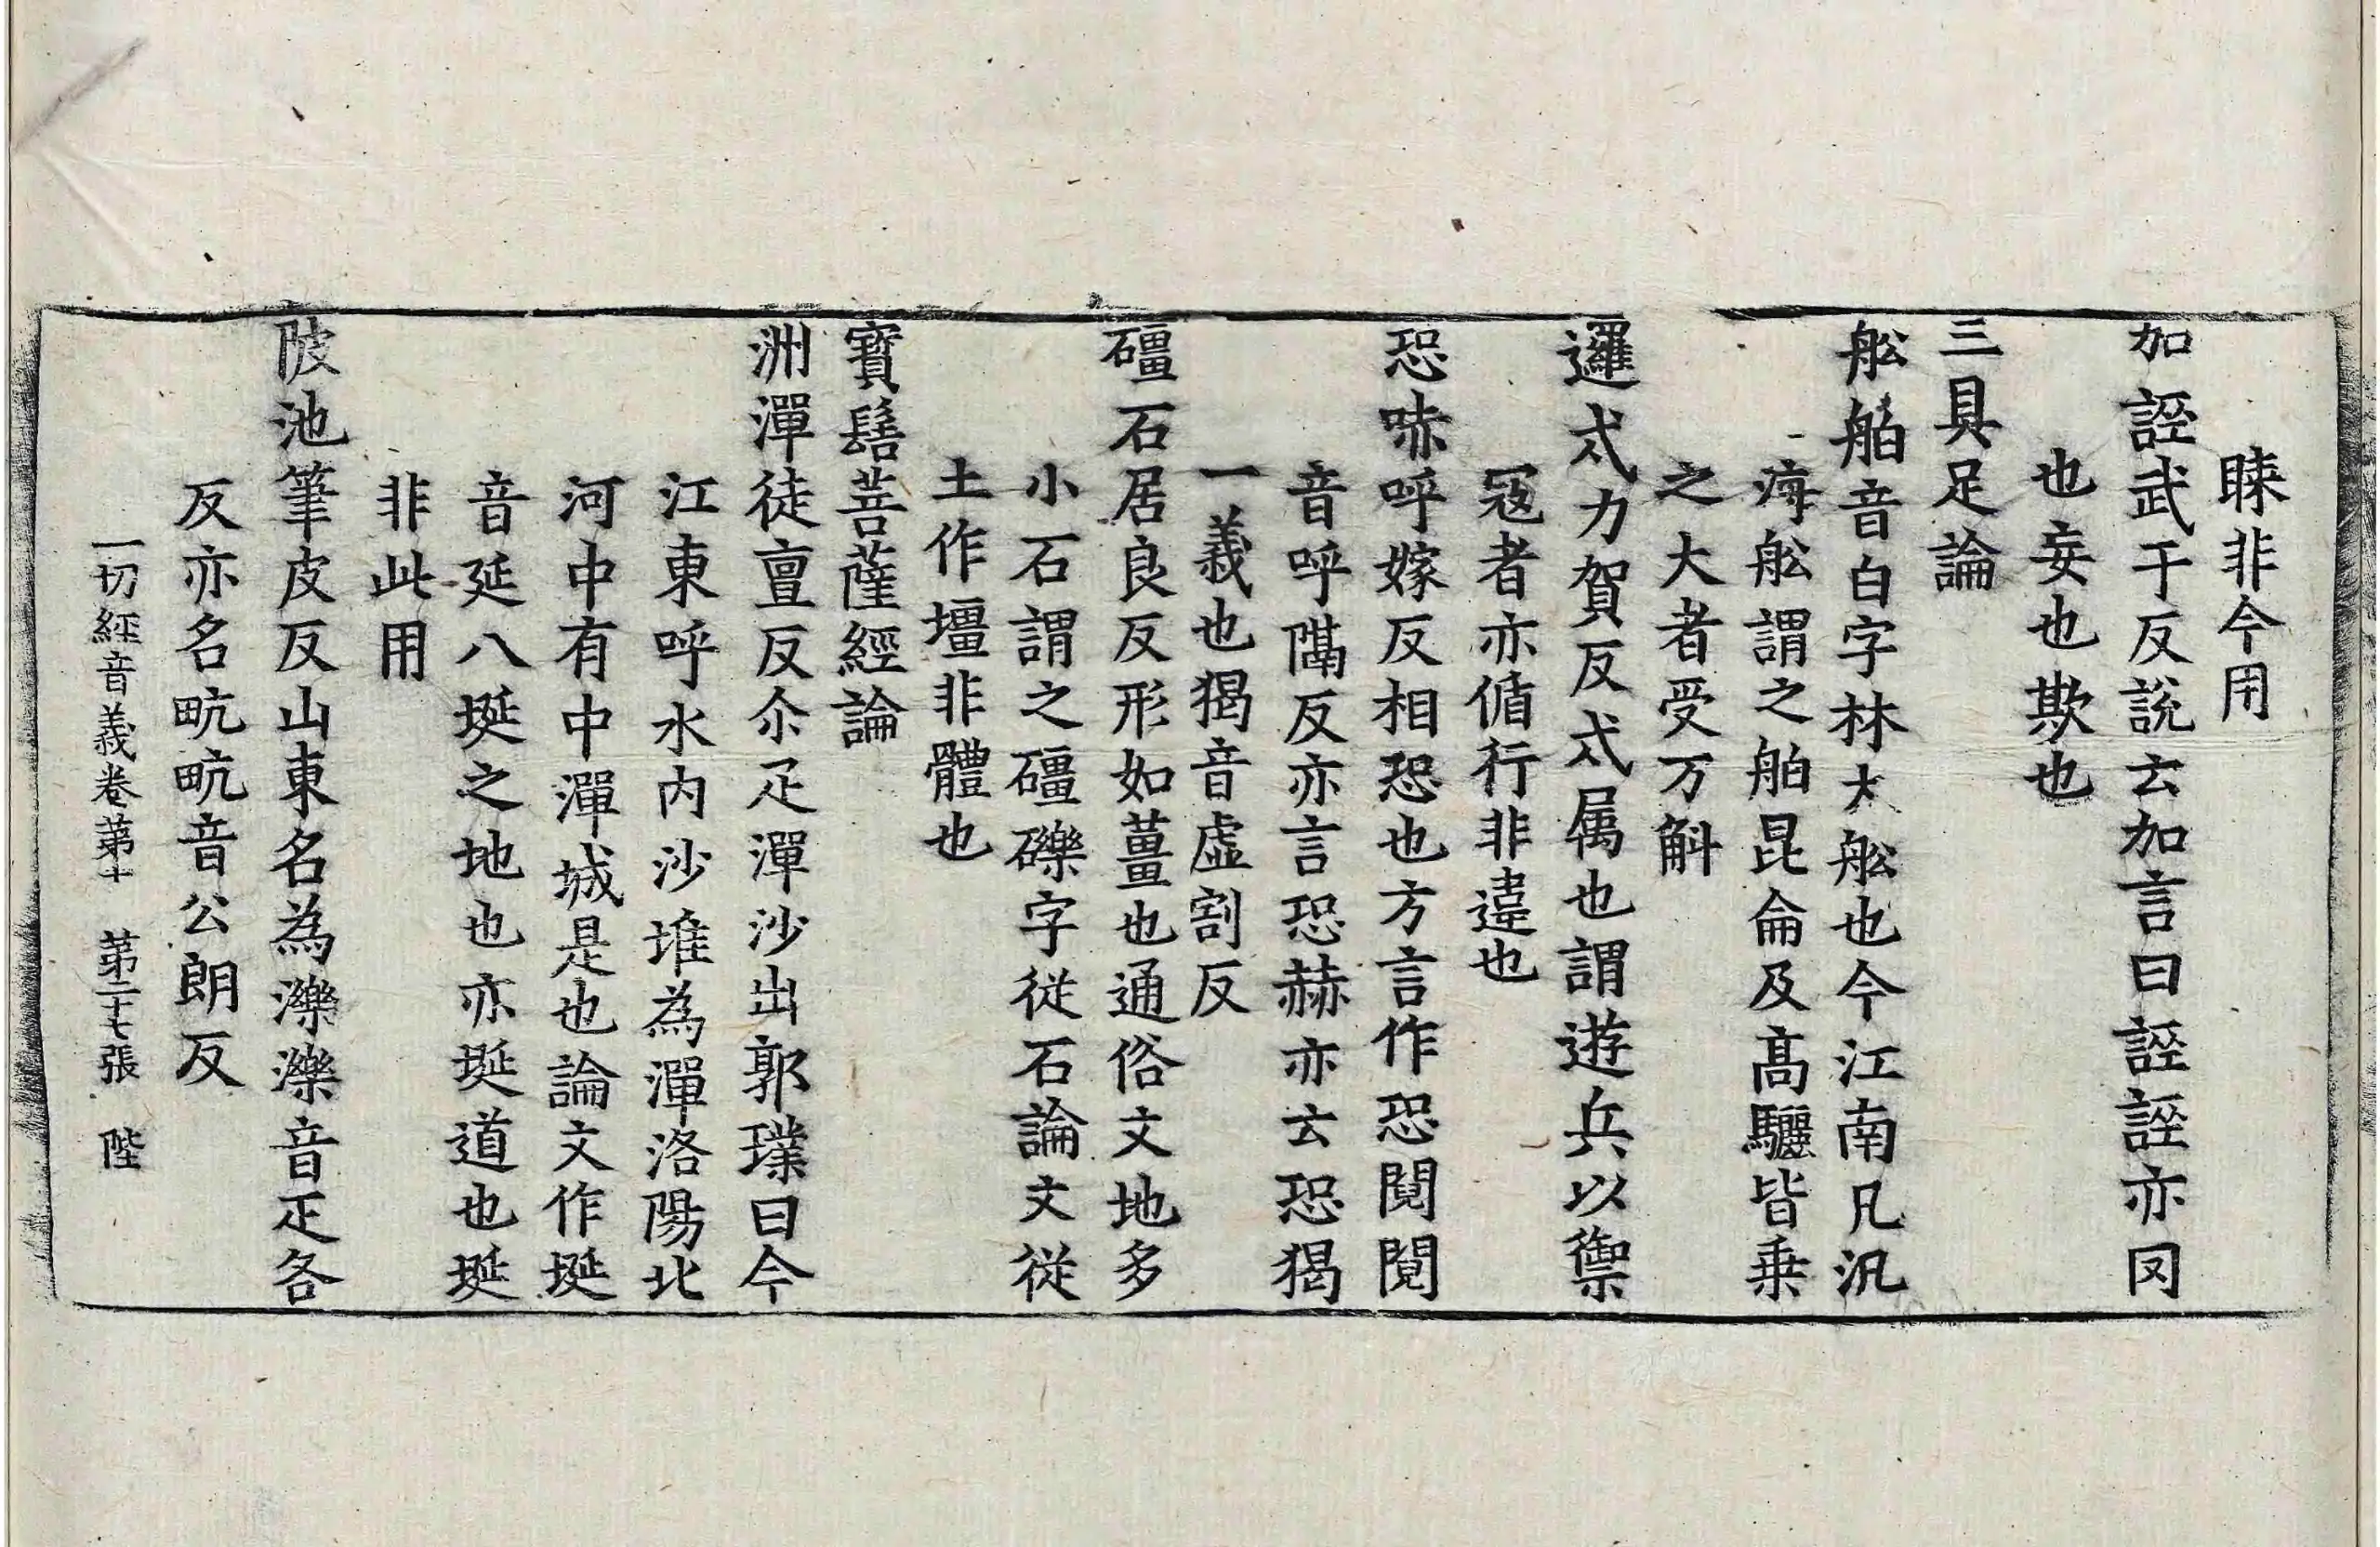 睞非今用
加誣武于反說云加言曰誣誣亦罔
也妄也欺也
三具足論
舩舶音白字林大舩也今江南凡汎
海舩謂之舶昆侖及高驪皆乗
之大者受万斛
邏忒力賀反忒属也謂遊兵以禦
寇者亦循行非違也
恐哧呼嫁反相恐也方言作恐鬩鬩
音呼隔反亦言恐赫亦云恐猲
一義也猲音虛割反
礓石居良反形如薑也通俗文地多
小石謂之礓礫字從石論文從
土作壃非體也
寶髻菩薩經論
洲潬徒亶反尒疋潬沙出郭璞曰今
江東呼水內沙堆為潬洛陽北
河中有中潬城是也論文作埏
音延八埏之地也亦埏道也埏
非此用
陂池筆皮反山東名為濼濼音疋各
反亦名畒畒音公朗反
一切經音義卷苐十　苐二十七張　陛